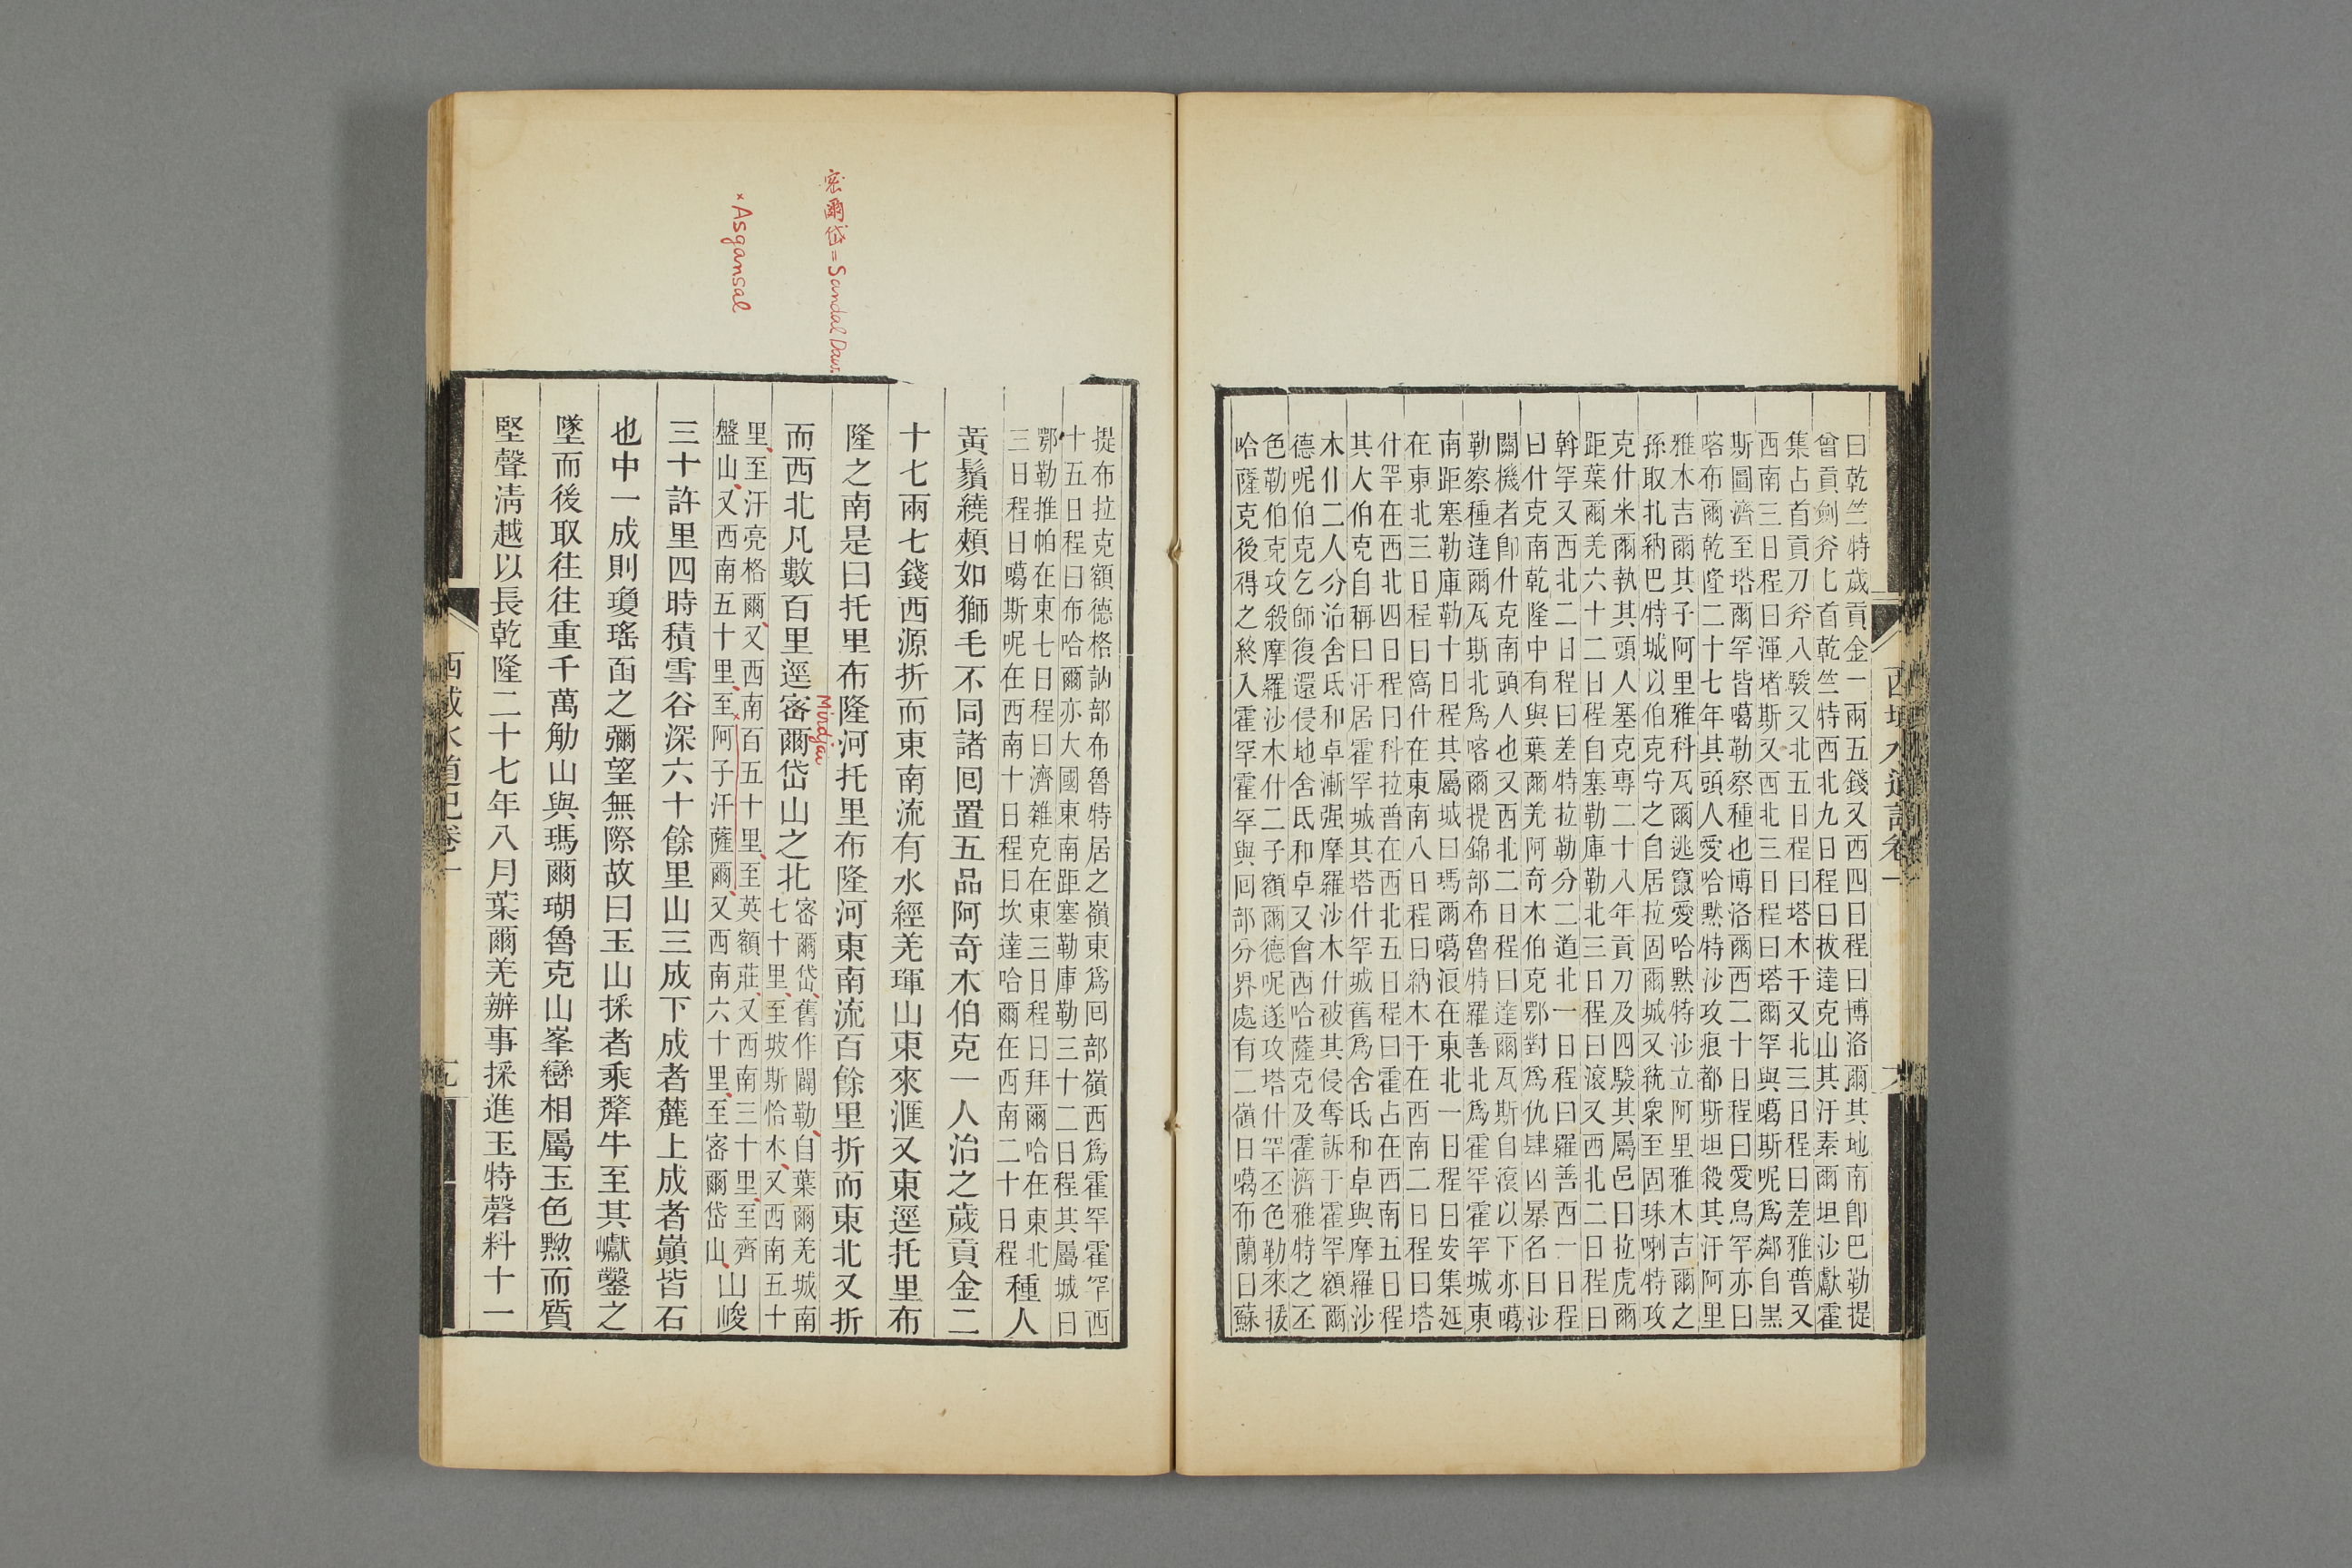 曰乾竺特歲貢金一兩五錢又西四日程曰博洛爾其地南卽巴勒提
曾貢劍斧匕首乾竺特西北九日程曰拔達克山其汗素爾坦沙獻霍
集占首貢刀斧八駿又北五日程曰塔木干又北三日程曰差雅普又
西南三日程曰渾堵斯又西北三日程曰塔爾罕與噶斯呢爲鄰自黑
斯圖濟至塔爾罕皆噶勒察種也博洛爾西二十日程曰愛烏罕亦曰
喀布爾乾隆二十七年其頭人愛哈黙特沙攻痕都斯坦殺其汗阿里
雅木吉爾其子阿里雅科瓦爾逃竄愛哈黙特沙立阿里雅木吉爾之
孫取扎納巴特城以伯克守之自居拉固爾城又統衆至固珠喇特攻
克什米爾執其頭人塞克專二十八年貢刀及四駿其屬邑曰拉虎爾
距葉爾羌六十二日程自塞勒庫勒北三日程曰滾又西北二日程曰
斡罕又西北二日程曰差特拉勒分二道北一日程曰羅善西一日程
曰什克南乾隆中有與葉爾羌阿奇木伯克鄂對爲仇肆凶暴名曰沙
關機者卽什克南頭人也又西北二日程曰達爾瓦斯自滾以下亦噶
勒察種達爾瓦斯北爲喀爾提錦部布魯特羅善北爲霍罕霍罕城東
南距塞勒庫勒十日程其屬城曰瑪爾噶浪在東北一日程曰安集延
在東北三日程曰窩什在東南八日程曰納木干在西南二日程曰塔
什罕在西北四日程曰科拉普在西北五日程曰霍占在西南五日程
其大伯克自稱曰汗居霍罕城其塔什罕城舊爲舍氐和卓與摩羅沙
木什二人分治舍氐和卓漸强摩羅沙木什被其侵奪訴于霍罕額爾
德呢伯克乞師復還侵地舍氐和卓又會西哈薩克及霍濟雅特之丕
色勒伯克攻殺摩羅沙木什二子額爾德呢遂攻塔什罕丕色勒來援
哈薩克後得之終入霍罕霍罕與回部分界處有二嶺曰噶布蘭曰蘇
西域水道記卷一
提布拉克額德格訥部布魯特居之嶺東爲回部嶺西爲霍罕霍罕西
十五日程曰布哈爾亦大國東南距塞勒庫勒三十二日程其屬城曰
鄂勒推帕在東七日程曰濟雜克在東三日程曰拜爾哈在東北
三日程曰噶斯呢在西南十日程曰坎達哈爾在西南二十日程
種人
黃鬚繞頰如獅毛不同諸回置五品阿奇木伯克一人治之歲貢金二
十七兩七錢西源折而東南流有水經羌琿山東來滙又東逕托里布
隆之南是曰托里布隆河托里布隆河東南流百餘里折而東北又折
而西北凡數百里逕密爾岱山之北
密爾岱舊作闢勒自葉爾羌城南
七十里至坡斯恰木又西南五十
里至汗亮格爾又西南百五十里至英額莊又西南三十里至齊
盤山又西南五十里至阿子汗薩爾又西南六十里至密爾岱山
山峻
三十許里四時積雪谷深六十餘里山三成下成者麓上成者巔皆石
也中一成則瓊瑤函之彌望無際故曰玉山採者乘犛牛至其巘鑿之
墜而後取往往重千萬觔山與瑪爾瑚魯克山峯巒相屬玉色黝而質
堅聲淸越以長乾隆二十七年八月葉爾羌辦事採進玉特磬料十一
西域水道記卷一
密爾岱=Sandal Daw.
×Asgansal
Mirdjai